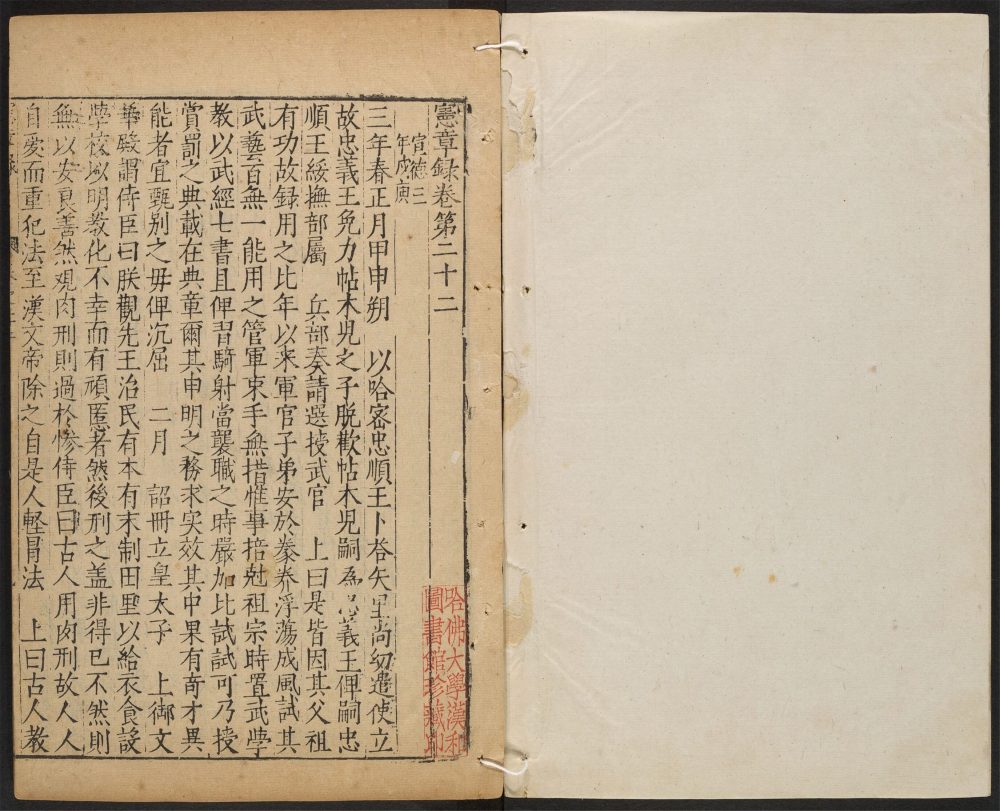 憲章録卷第二十二
宣德三
年戊庚
三年春正月甲申朔　以哈密忠順王卜荅失里尚幼遣使立
故忠義王免力帖木児之子脱歡帖木児嗣為忠義王俾嗣忠
順王綏撫部屬　兵部奏請選授武官　上曰是皆因其父祖
有功故録用之比年以来軍官子弟安於豢养浮蕩成風試其
武藝百無一能用之管軍束手無措惟事掊尅祖宗時置武學
教以武經七書且俾習騎射當襲職之時嚴加比試試可乃授
賞罰之典載在典章爾其申明之務求实效其中果有奇才異
能者宜甄别之毋俾沉屈　二月　詔冊立皇太子　上御文
華殿謂侍臣曰朕觀先王治民有本有末制田里以給衣食設
學校以明教化不幸而有頑慝者然後刑之盖非得已不然則
無以安良善然观肉刑則過於慘侍臣曰古人用肉刑故人人
自爱而重犯法至漢文帝除之自是人輕冒法　上曰古人教
哈佛大學漢和
圖書館珍藏印